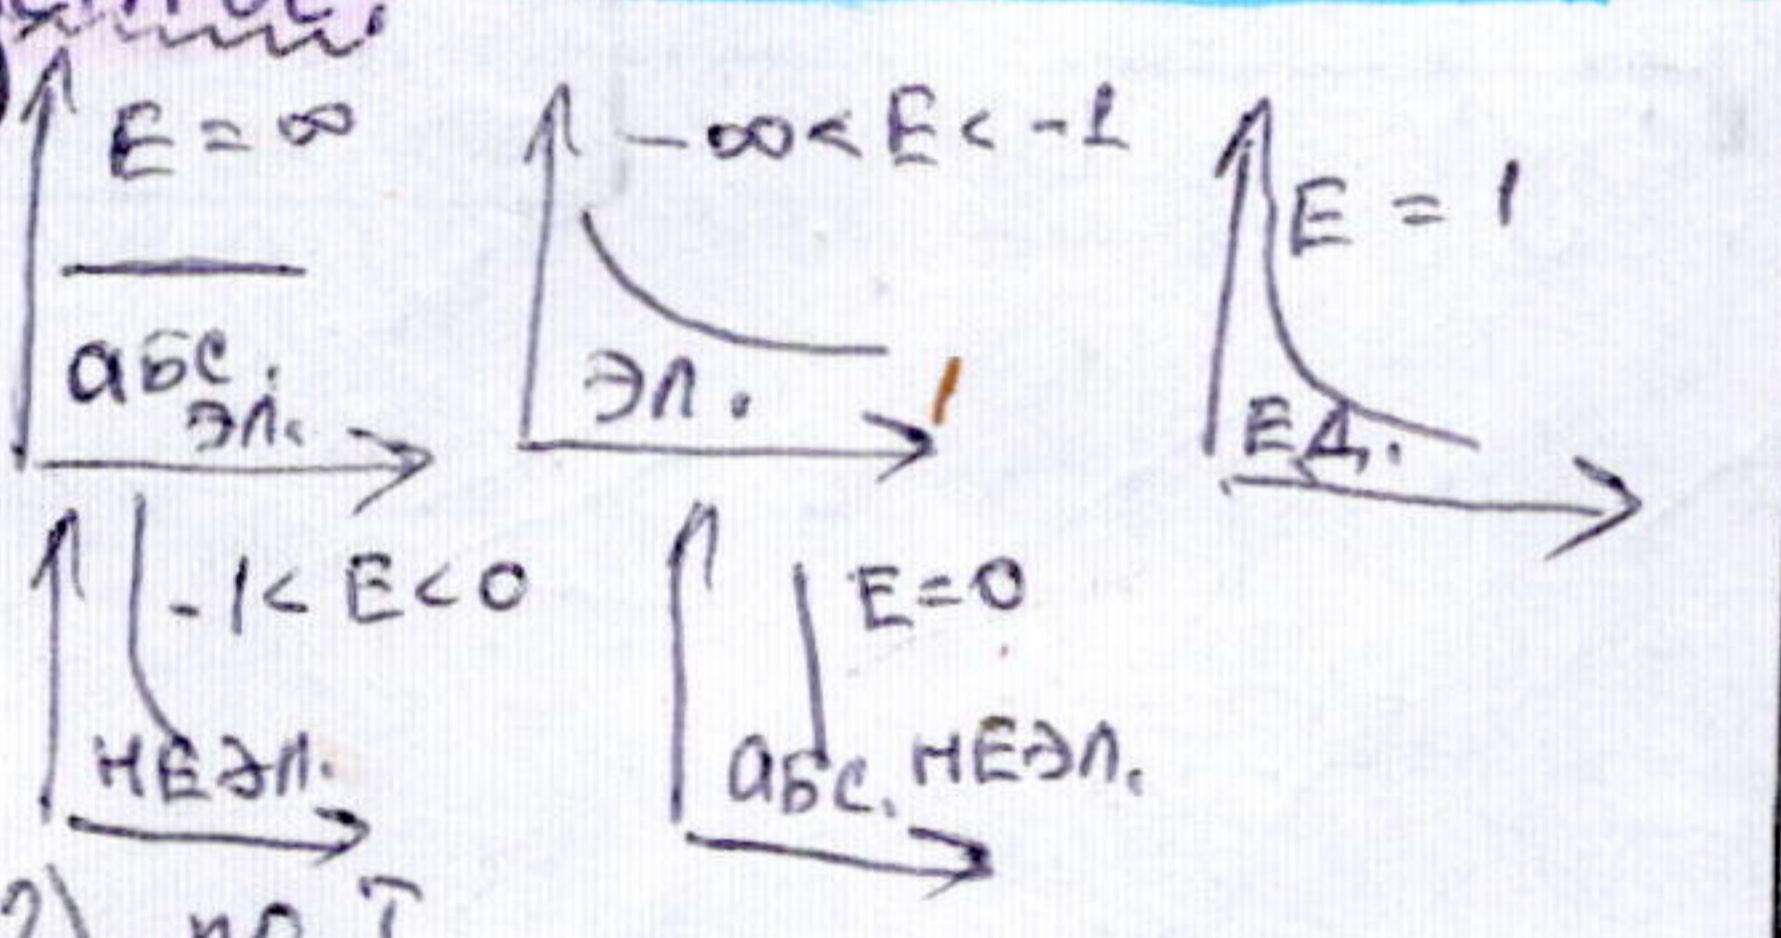 E = ∞
абс. эл.
-∞ < E < -1
эл.
E = 1
ЕД.
-1 < E < 0
НЕЭЛ.
E = 0
абс. НЕЭЛ.
2) по